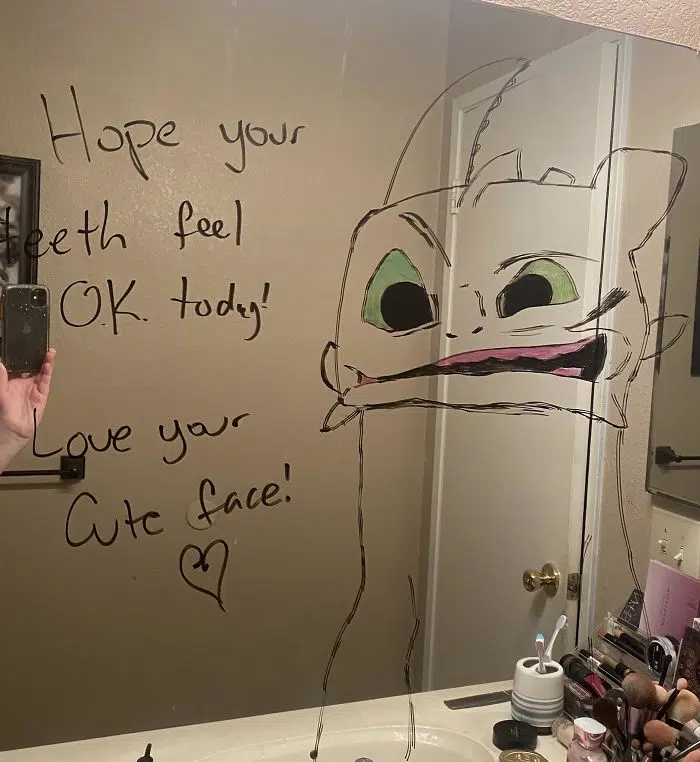 Hope your
teeth feel
O.K. today!
Love your
Cute face!